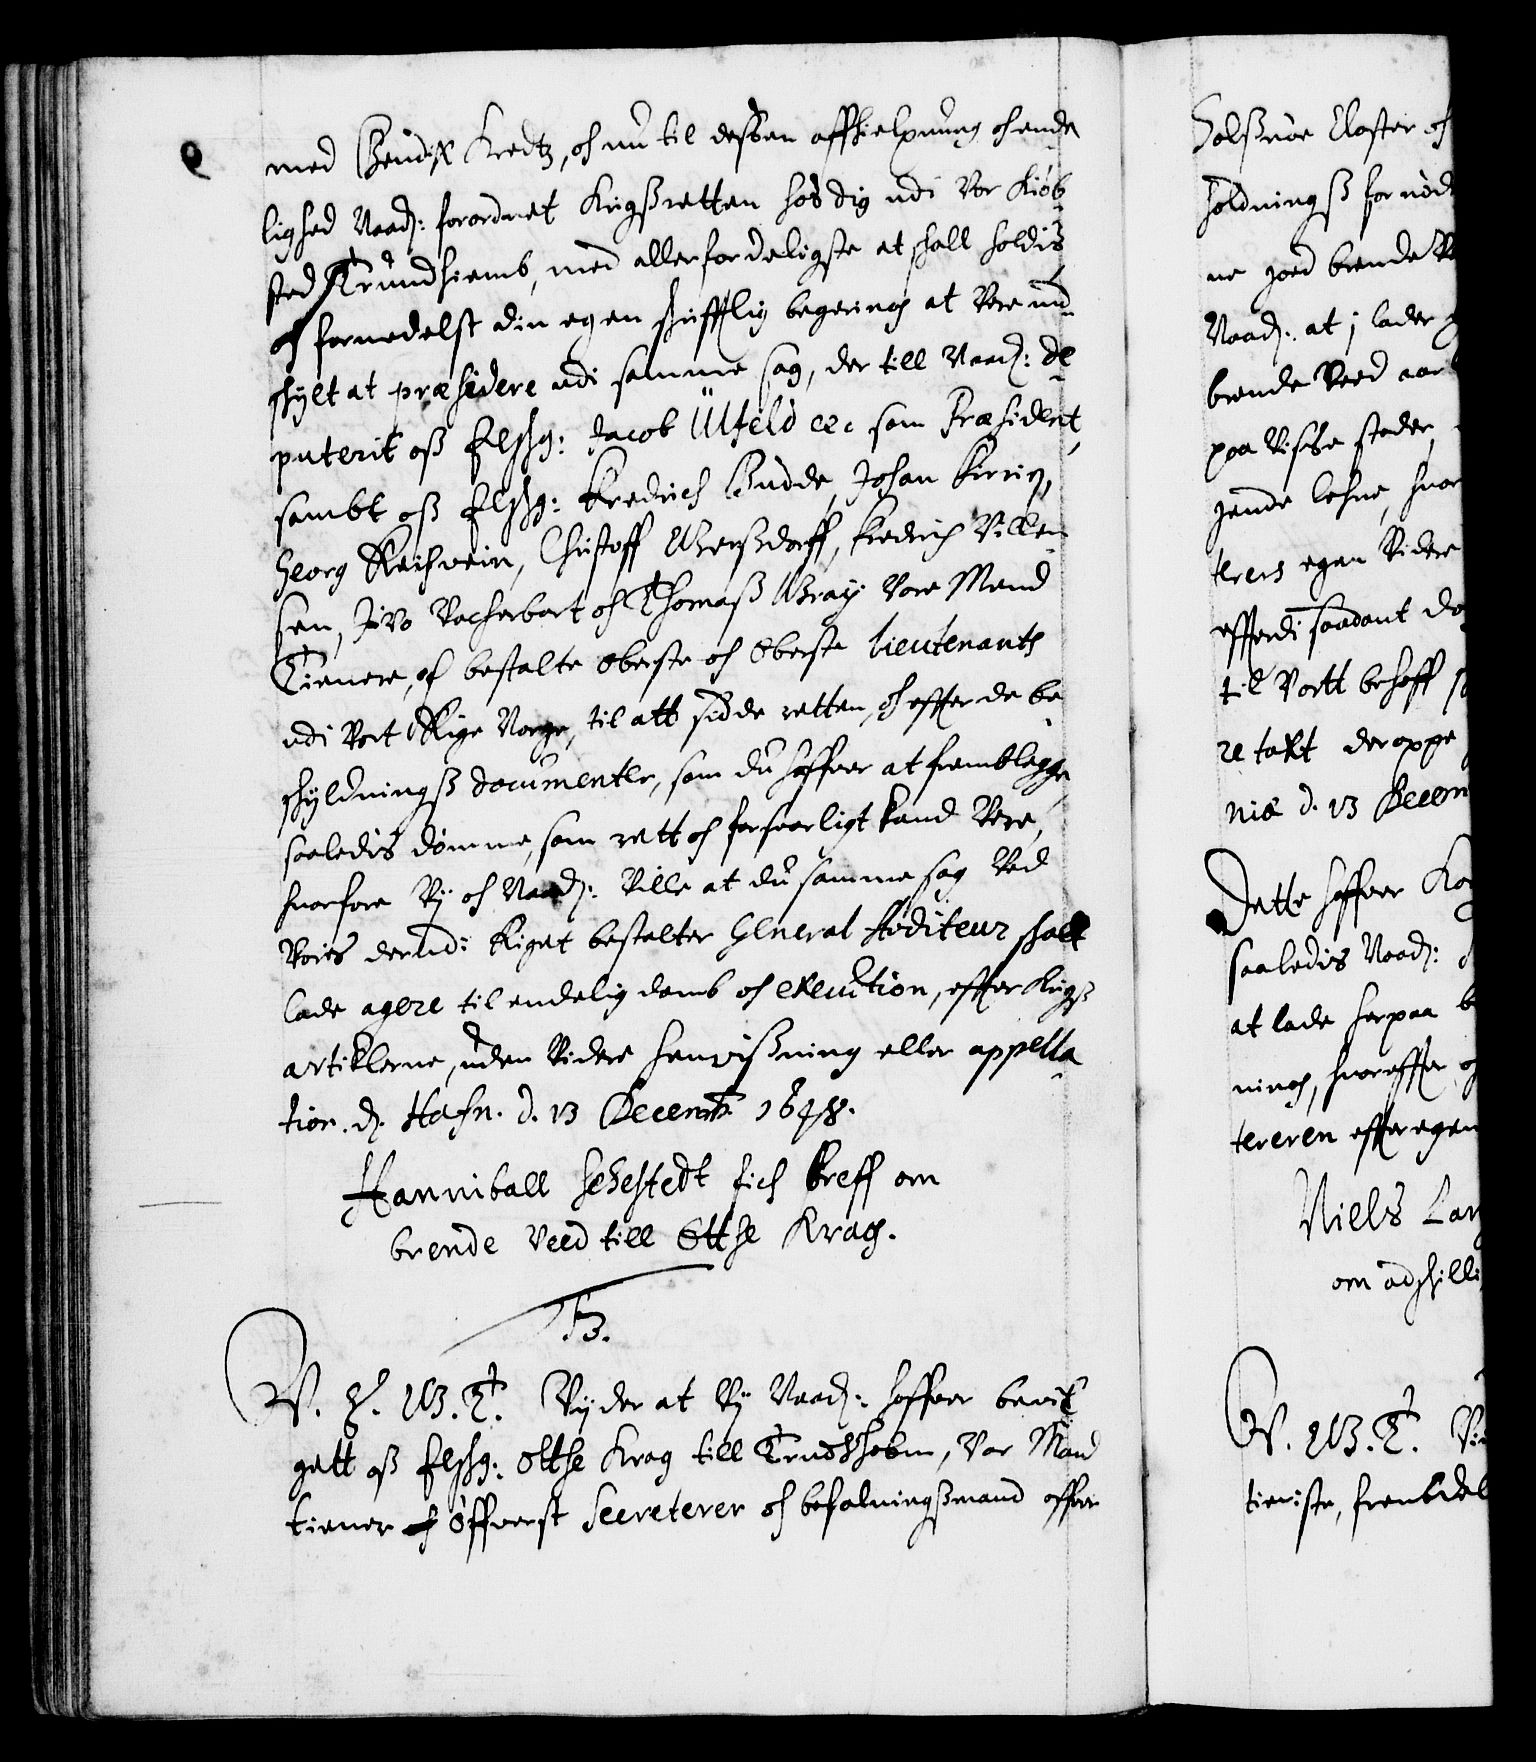 med Bendix Kretz, oc nu til dessen affhielpning oc ende
lighed Naad: forordnet Krigßretten hos dig udi Vor Kiøb
sted Trundhiemb, med allerforderligste at schall holdis
oc formedelst din egen schrifftlig begering at Vere und
schylt at præsidere udi samme sag, der till Naad: de
puterit oß Elschg: Jacob Ulfeld etc som Præsident,
sambt oß Elschg: Fredrich Budde, Johan
Georg Reichwein, Christoff Gersdorff, Fredrich Villem
sen, Ivo Racherbart oc Thomaß Gray Vore Mend
Tienere, oc bestalte Oberste oc Oberste Lieutenants
udi Vort Rige Norge, til att sidde retten, oc effter de be
schyldningß documenter, som du haffver at fremblegge,
saaledis dømme, som rett oc forsvarligt kand Vere,
hvorfore Vy oc Naad: Ville at du samme sag Ved
Voris der udi Riget bestalter General Auditeur schalt
lade agere til endelig domb oc execution, effter Krigß
artiklerne, uden Videre henvißning eller appella
tion. Hafn. d. 13 Decemb. 1648.
Hanniball Sehestedt fich breff om
brende Veed till Otthe Krag.
W. G. W. T. Vyder at Vy Naad: haffver bevil
gett oß Elschg: Otthe Krag till Trudsholm, Vor Mand
tiener oc Øffverst Secreterer oc befalningßmand offver
Holßnøe Closter oc
holdningß fornød
ne goed brende V
Naad: at i lader
brende Veed aar
paa Visße steder,
gende lehne, hvor
terers egen Videre
effterdi saadant
til Vortt behoff
re tatt deroppe
niæ d. 13 Decem
Dette haffver
saaledis Naad:
at lade herpaa b
ning, hvoreffter
tereren effter egen
Niels Lan
om adschilli
W. W. T. Vi
tieniste, frembdel